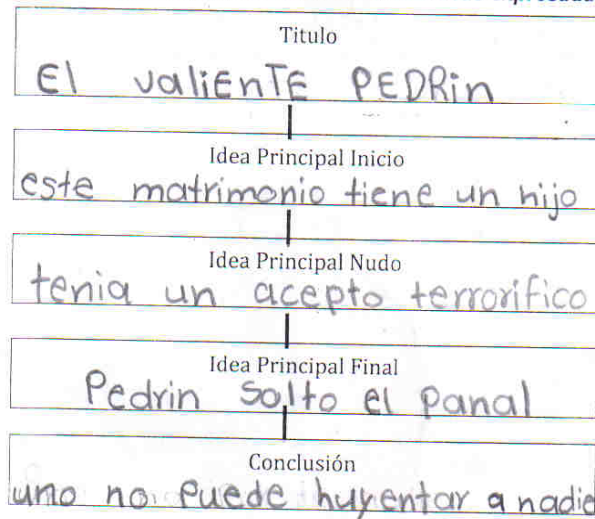 Titulo
El valiEnTE PEDRin
Idea Principal Inicio
este matrimonio tiene un hijo
Idea Principal Nudo
tenia un acepto terrorifico
Idea Principal Final
Pedrin Salto el panal
Conclusión
uno no puede huyentar a nadie